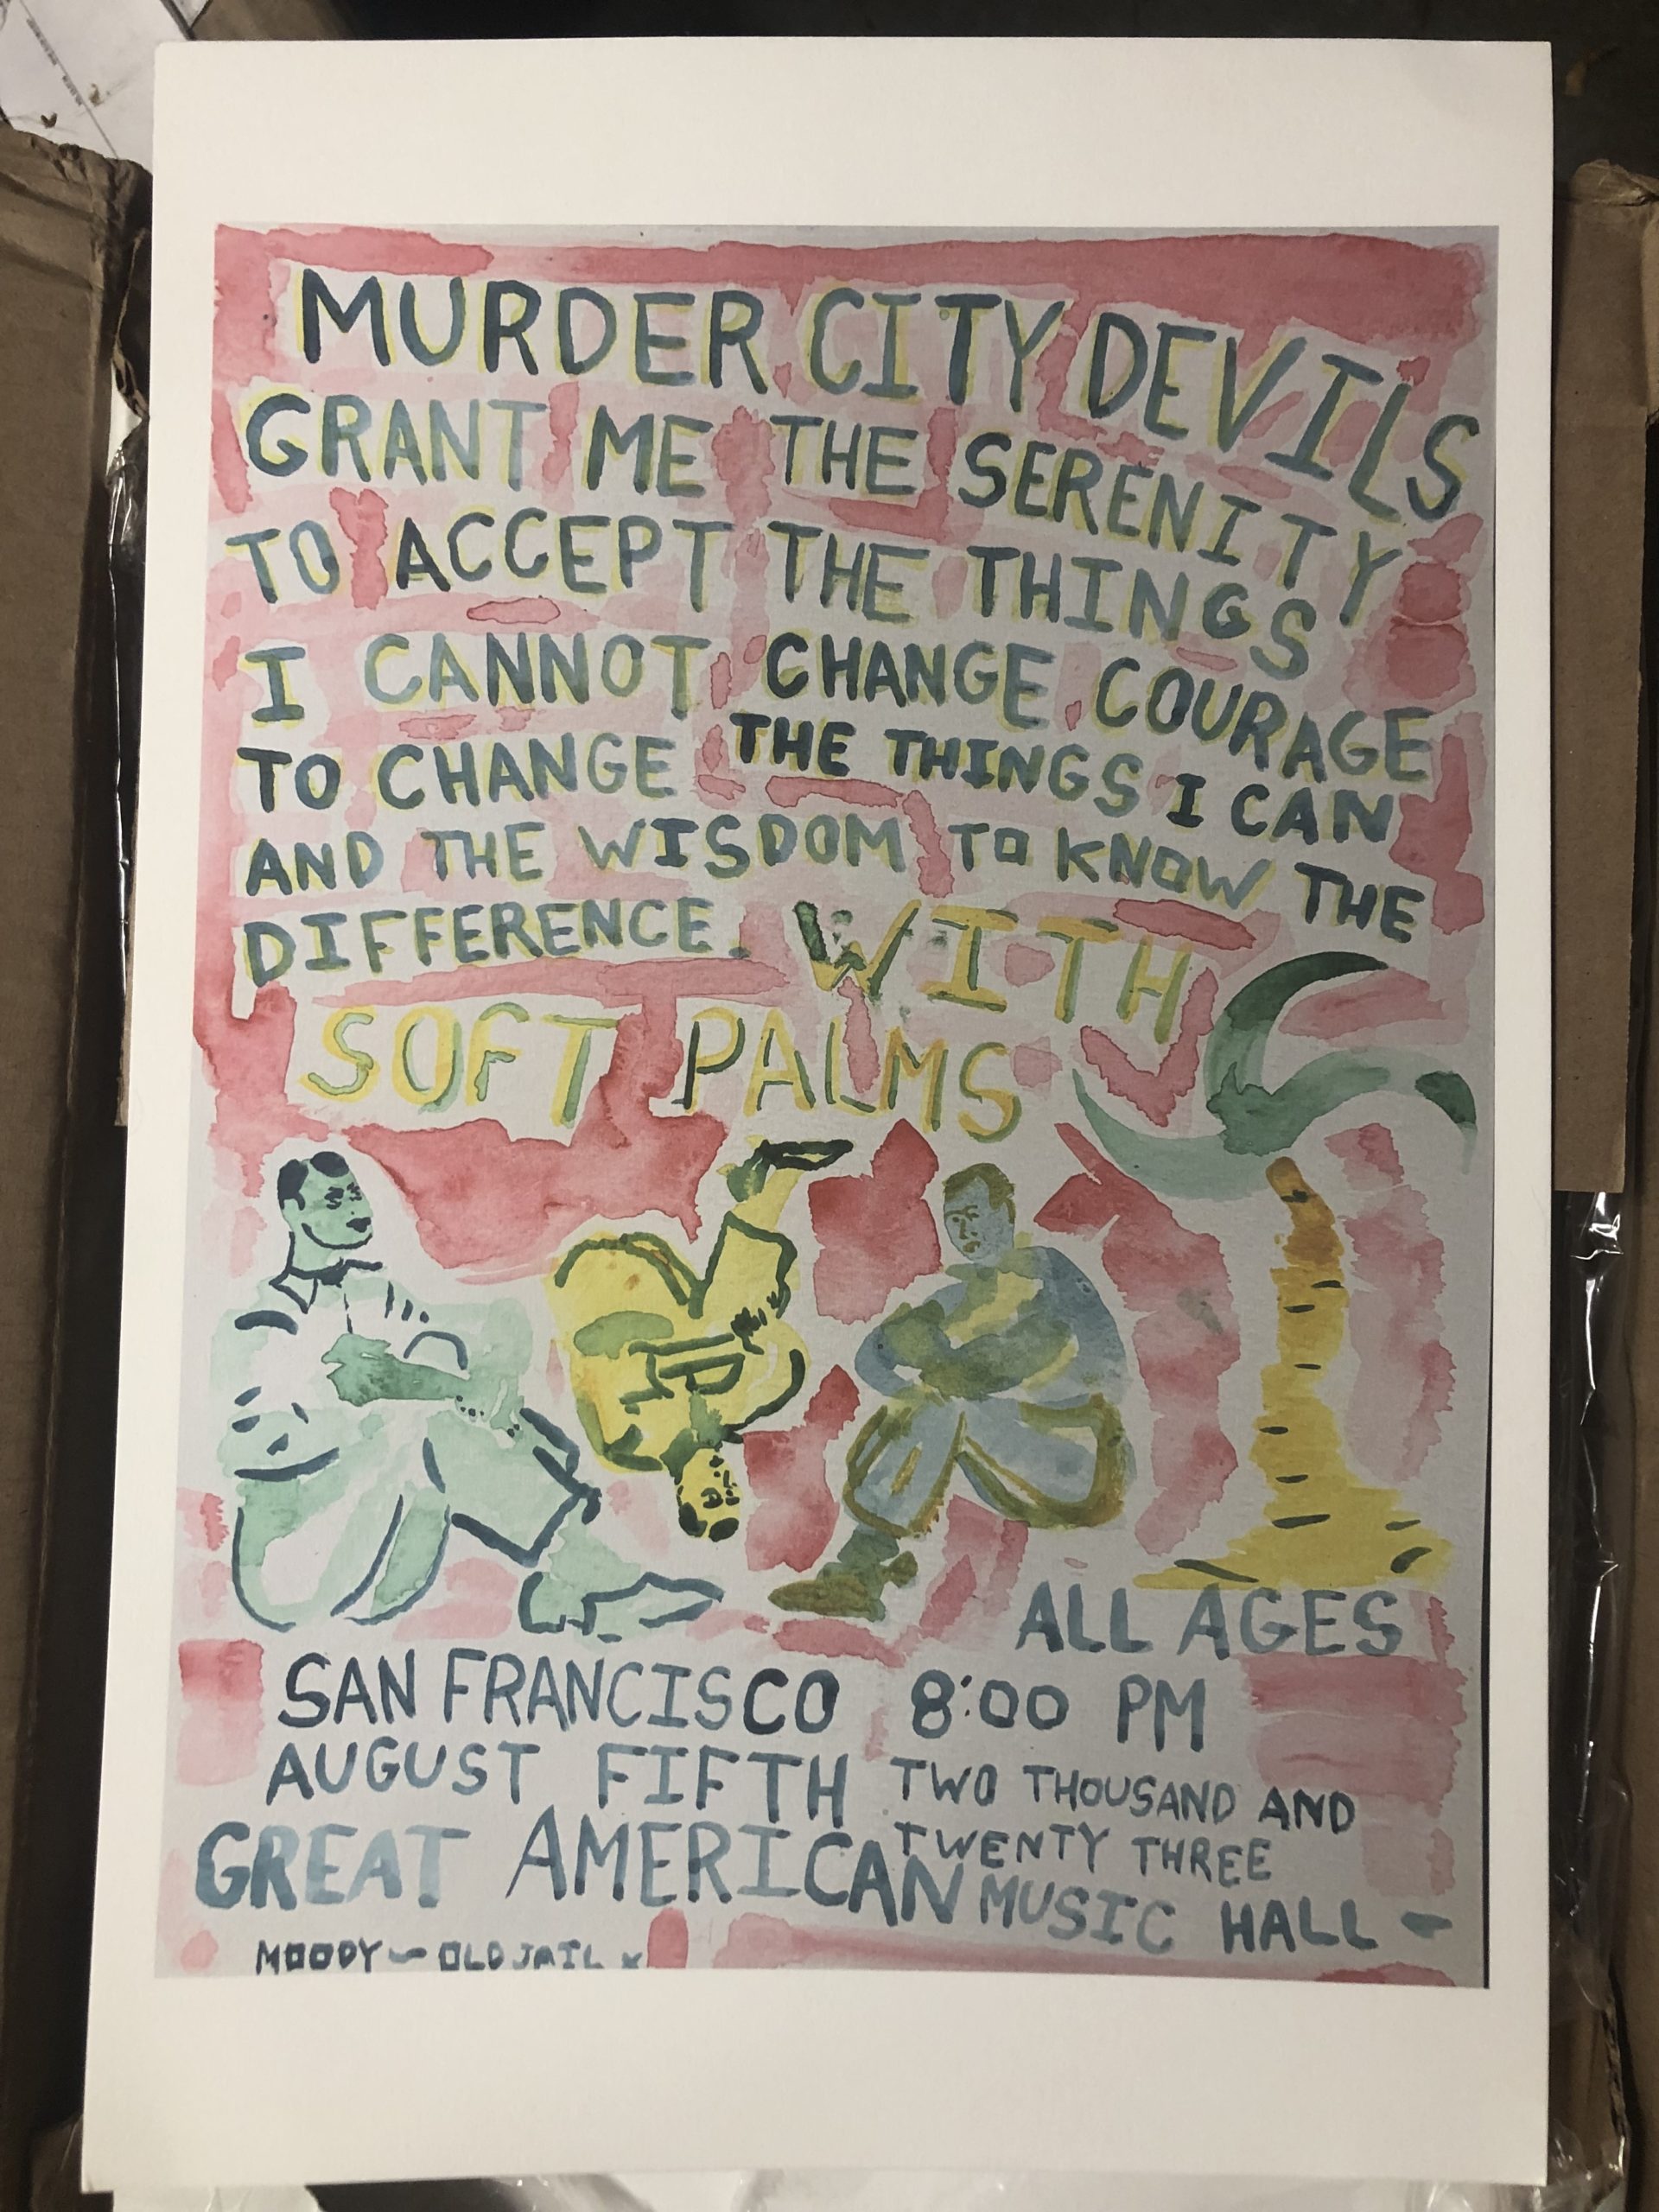 MURDER CITY DEVILS
GRANT ME THE SERENITY
TO ACCEPT THE THINGS
I CANNOT CHANGE COURAGE
TO CHANGE THE THINGS I CAN
AND THE WISDOM TO KNOW THE
DIFFERENCE. WITH
SOFT PALMS
ALL AGES
SAN FRANCISCO 8:00 PM
AUGUST FIFTH TWO THOUSAND AND
TWENTY THREE
GREAT AMERICAN MUSIC HALL -
MOODY - OLD JAIL x